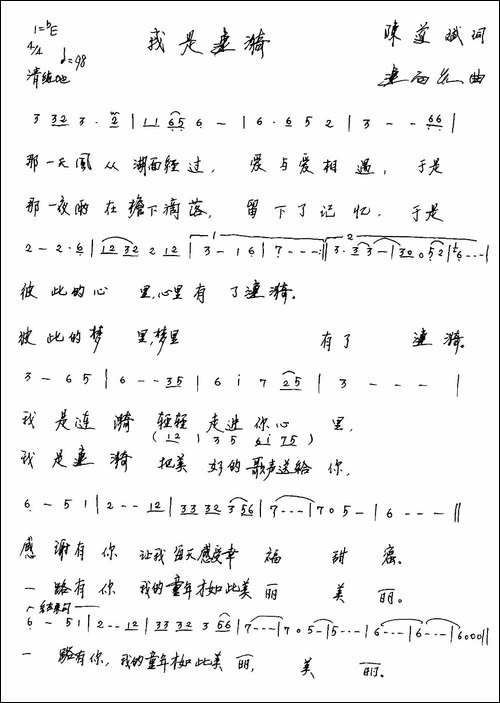 1=♭E
4/4
♩=98
我是涟漪
词
曲
3 32 3 · 2 | 11 65 6 - | 6 · 6 5 2 | 3 - - 66 |
那一天风从湖面经过，爱与爱相遇，于是
那一夜雨在檐下滴落，留下了记忆．于是
2 - 2 · 6 | 12 32 2 12 | 3 - 1 6 | 7 - - - :|| 3 · 3 3 - | 3 2 0 5 2 | 6 - - - |
彼此的心里，心里有了涟漪。
彼此的梦里，梦里有了涟漪。
3 - 6 5 | 6 - - 35 | 6 i 7 25 | 3 - - - |
我是连漪轻轻走进你心里，
( 12 1 3 5 6i 75 )
我是涟漪把美好的歌声送给你，
6 - 5 1 | 2 - - 12 | 33 32 3 56 | 7 - - - | 7 0 5 - | 6 - - - ||
感谢有你让我每天感受幸福甜蜜。
一路有你我的童年才如此美丽美丽。
结束句
6 - 5 1 | 2 - - 12 | 33 32 3 56 | 7 - - - | 7 0 5 - | 5 - - - | 6 - - - | 6 - - - | 6000 ||
一路有你，我的童年才如此美丽，美丽。